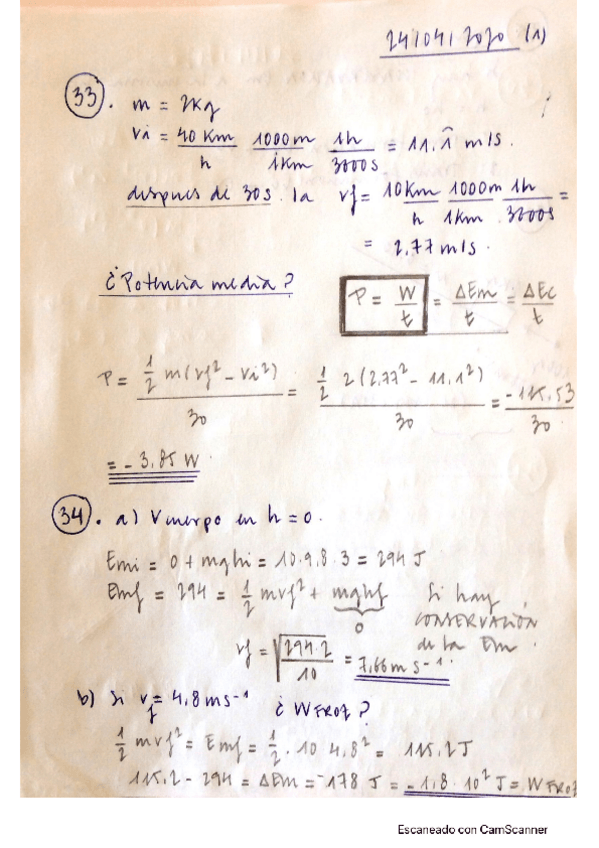 24/04/2020 (1)
33. m = 2Kg
vi = 40 Km/h 1000m/1Km 1h/3600s = 11.1̂ m/s.
despues de 30s. la vf = 10Km/h 1000m/1Km 1h/3600s =
= 2,77 m/s.
¿Potencia media? P = W/t = ΔEm/t = ΔEc/t
P = ½ m(vf² - vi²)/30 = ½ 2(2,77² - 11,1²)/30 = -115,53/30
= - 3,85 W.
34. a) Vcuerpo en h = 0.
Emi = 0 + mghi = 10.9,8.3 = 294 J
Emf = 294 = ½ mvf² + mghf Si hay
0 CONSERVACIÓN
de la Em.
vf = √294.2/10 = 7,66 m s-1.
b) Si vf = 4,8 ms-1 ¿ WFROZ?
½ mvf² = Emf = ½ . 10 4,8² = 115,2 J
115,2 - 294 = ΔEm = -178 J = -1,8 . 10² J = WFROZ
Escaneado con CamScanner